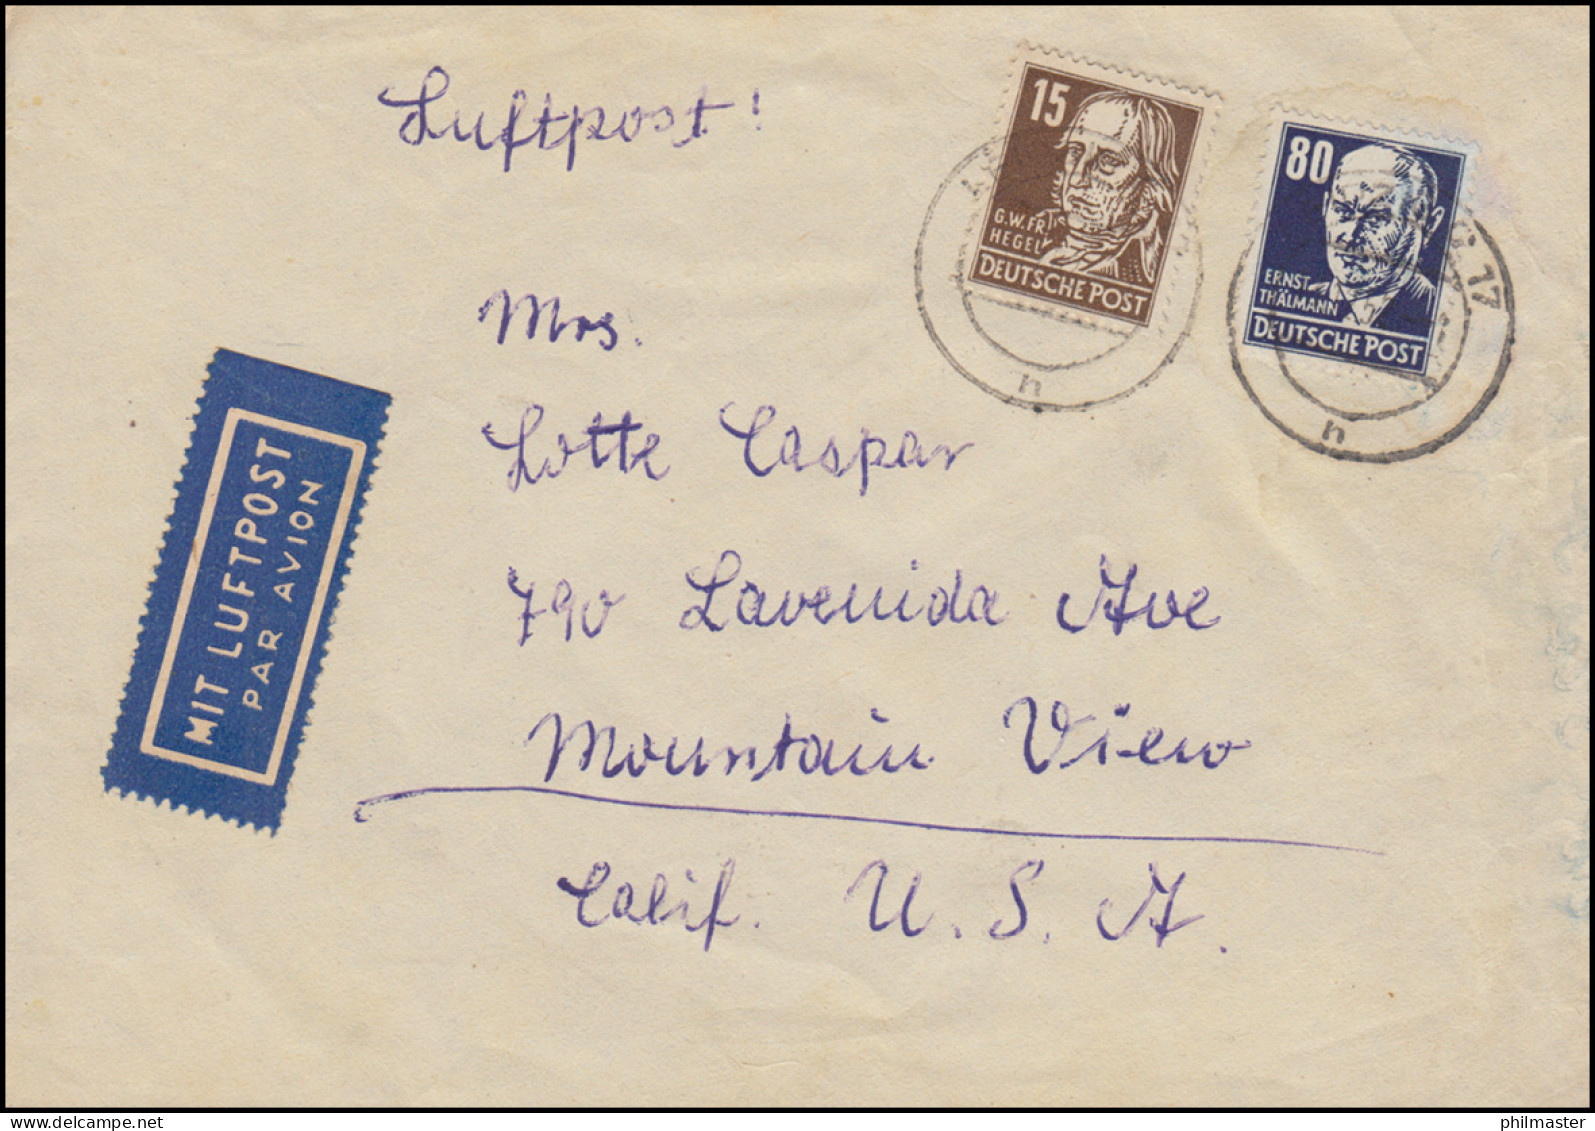 Luftpost!
15
G.W.FR.
HEGEL
DEUTSCHE POST
80
ERNST
THÄLMANN
DEUTSCHE POST
17
n
n
MIT LUFTPOST
PAR AVION
Mrs.
Lotte Caspar
790 Lavenida Ave
Mountain View
Calif. U.S.A.
philmaster